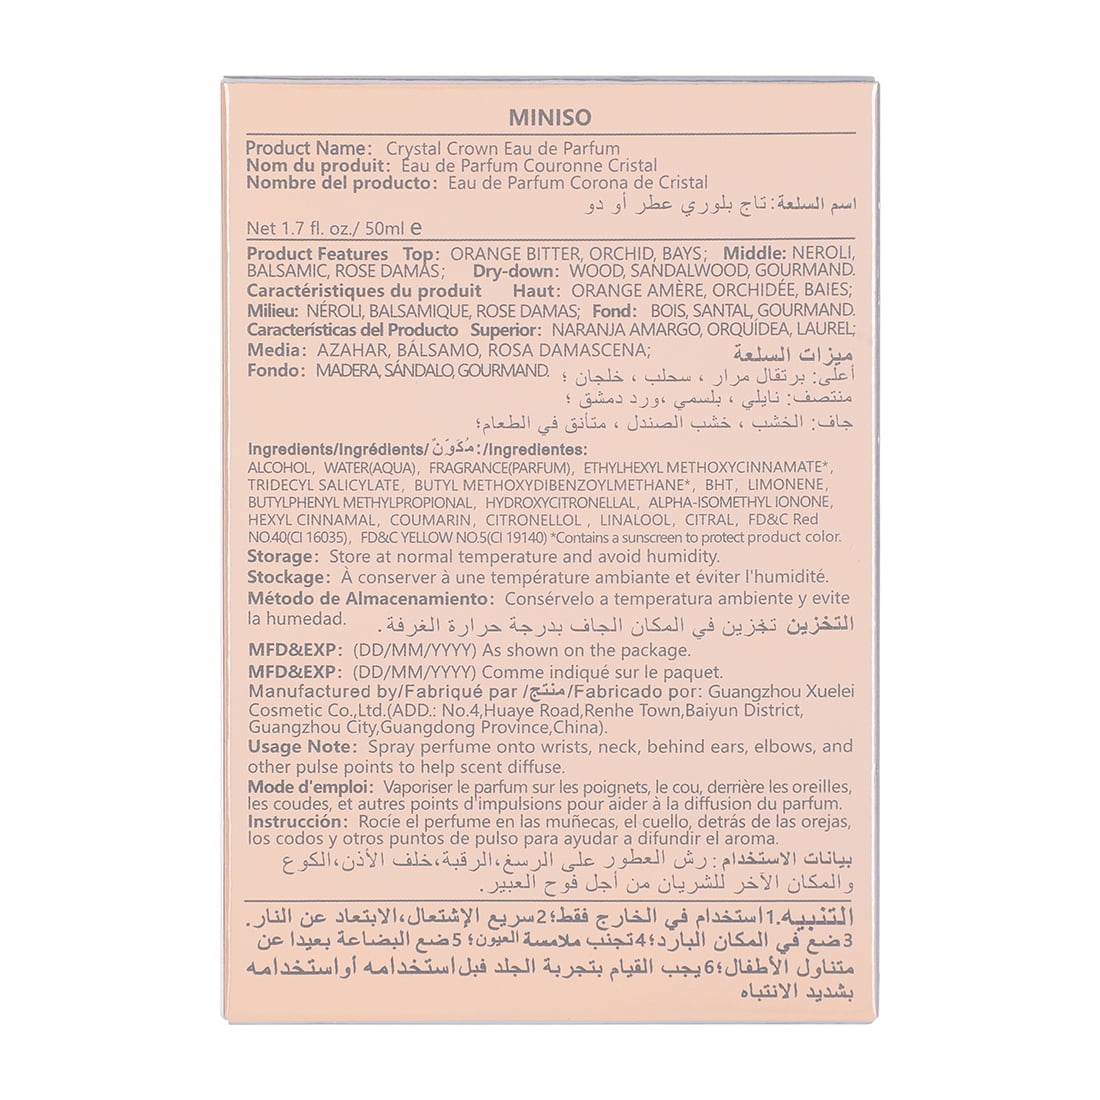 MINISO
Product Name: Crystal Crown Eau de Parfum
Nom du produit: Eau de Parfum Couronne Cristal
Nombre del producto: Eau de Parfum Corona de Cristal
اسم السلعة: تاج بلوري عطر أو دو
Net 1.7 fl. oz./ 50ml e
Product Features Top: ORANGE BITTER, ORCHID, BAYS; Middle: NEROLI,
BALSAMIC, ROSE DAMAS; Dry-down: WOOD, SANDALWOOD, GOURMAND.
Caractéristiques du produit Haut: ORANGE AMÈRE, ORCHIDÉE, BAIES;
Milieu: NÉROLI, BALSAMIQUE, ROSE DAMAS; Fond: BOIS, SANTAL, GOURMAND.
Características del Producto Superior: NARANJA AMARGO, ORQUÍDEA, LAUREL;
Media: AZAHAR, BÁLSAMO, ROSA DAMASCENA; ميزات السلعة
Fondo: MADERA, SÁNDALO, GOURMAND. أعلى: برتقال مرار ، سحلب ، خلجان ؛
منتصف: نايلي ، بلسمي ،ورد دمشق ؛
جاف: الخشب ، خشب الصندل ، متأنق في الطعام؛
Ingredients/Ingrédients/مُكَوِّنٌ:/Ingredientes:
ALCOHOL, WATER(AQUA), FRAGRANCE(PARFUM), ETHYLHEXYL METHOXYCINNAMATE*,
TRIDECYL SALICYLATE, BUTYL METHOXYDIBENZOYLMETHANE*, BHT, LIMONENE,
BUTYLPHENYL METHYLPROPIONAL, HYDROXYCITRONELLAL, ALPHA-ISOMETHYL IONONE,
HEXYL CINNAMAL, COUMARIN, CITRONELLOL , LINALOOL, CITRAL, FD&C Red
NO.40(CI 16035), FD&C YELLOW NO.5(CI 19140) *Contains a sunscreen to protect product color.
Storage: Store at normal temperature and avoid humidity.
Stockage: À conserver à une température ambiante et éviter l'humidité.
Método de Almacenamiento: Consérvelo a temperatura ambiente y evite
la humedad. التخزين تخزين في المكان الجاف بدرجة حرارة الغرفة.
MFD&EXP: (DD/MM/YYYY) As shown on the package.
MFD&EXP: (DD/MM/YYYY) Comme indiqué sur le paquet.
Manufactured by/Fabriqué par /منتج/Fabricado por: Guangzhou Xuelei
Cosmetic Co.,Ltd.(ADD.: No.4,Huaye Road,Renhe Town,Baiyun District,
Guangzhou City,Guangdong Province,China).
Usage Note: Spray perfume onto wrists, neck, behind ears, elbows, and
other pulse points to help scent diffuse.
Mode d'emploi: Vaporiser le parfum sur les poignets, le cou, derrière les oreilles,
les coudes, et autres points d'impulsions pour aider à la diffusion du parfum.
Instrucción: Rocíe el perfume en las muñecas, el cuello, detrás de las orejas,
los codos y otros puntos de pulso para ayudar a difundir el aroma.
بيانات الاستخدام: رش العطور على الرسغ،الرقبة،خلف الأذن،الكوع
والمكان الآخر للشريان من أجل فوح العبير.
التنبيه.1استخدام في الخارج فقط؛2سريع الإشتعال،الابتعاد عن النار.
3ضع في المكان البارد؛4تجنب ملامسة العيون؛ 5ضع البضاعة بعيدا عن
متناول الأطفال؛6يجب القيام بتجربة الجلد قبل استخدامه أو استخدامه
بشديد الانتباه